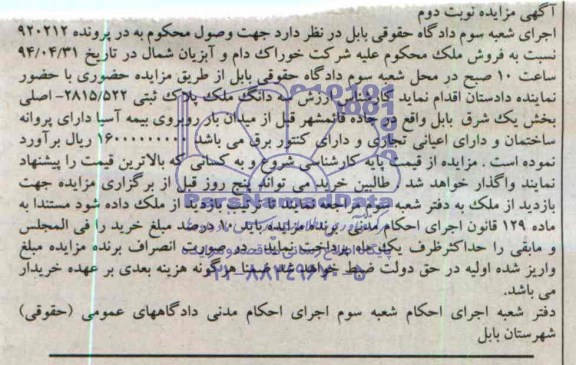 آگهی مزایده نوبت دوم
اجرای شعبه سوم دادگاه حقوقی بابل در نظر دارد جهت وصول محکوم به در پرونده ۹۲۰۲۱۲
نسبت به فروش ملک محکوم علیه شرکت خوراک دام و آبزیان شمال در تاریخ ۹۴/۰۴/۳۱
ساعت ۱۰ صبح در محل شعبه سوم دادگاه حقوقی بابل از طریق مزایده حضوری با حضور
نماینده دادستان اقدام نماید ارزش سه دانگ ملک پلاک ثبتی ۲۸۱۵/۵۲۲- اصلی
بخش یک شرق بابل واقع در جاده قائمشهر قبل از میدان بار روبروی بیمه آسیا دارای پروانه
ساختمان و دارای اعیانی تجاری و دارای کنتور برق می باشد ریال برآورد
نموده است . مزایده از قیمت پایه کارشناسی شروع و به کسانی که بالاترین قیمت را پیشنهاد
نمایند واگذار خواهد شد . طالبین خرید می توانند پنج روز قبل از برگزاری مزایده جهت
بازدید از ملک به دفتر شعبه مراجعه نمایند تا ترتیب بازدید از ملک داده شود مستندا به
ماده ۱۲۹ قانون اجرای احکام مدنی برنده مزایده باید ۱۰ درصد مبلغ خرید را فی المجلس
و مابقی را حداکثر ظرف یک ماه پرداخت نماید . در صورت انصراف برنده مزایده مبلغ
واریز شده اولیه در حق دولت ضبط خواهد شد ضمنا هرگونه هزینه بعدی بر عهده خریدار
می باشد.
دفتر شعبه اجرای احکام شعبه سوم اجرای احکام مدنی دادگاههای عمومی (حقوقی)
شهرستان بابل
ParsNamadData
پایگاه اطلاع رسانی مناقصه و مزایده
۰۲۱-۸۸۳۴۹۶۷۰-۵